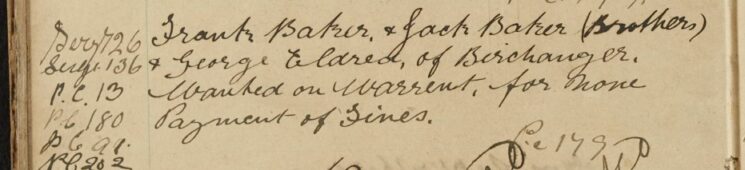 Serg 126 Frank Baker, & Jack Baker (Brothers)
Serg. 136 & George Eldred, of Birchanger.
P.C. 13 Wanted on Warrent, for None
P.C. 180 Payment of Fines.
P.C. 91.
P.C. 179
P.C. 202